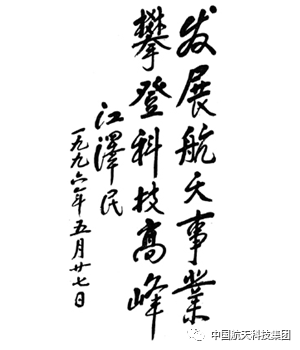 发展航天事業
攀登科技高峰
江澤民
一九九六年五月廿七日
中国航天科技集团